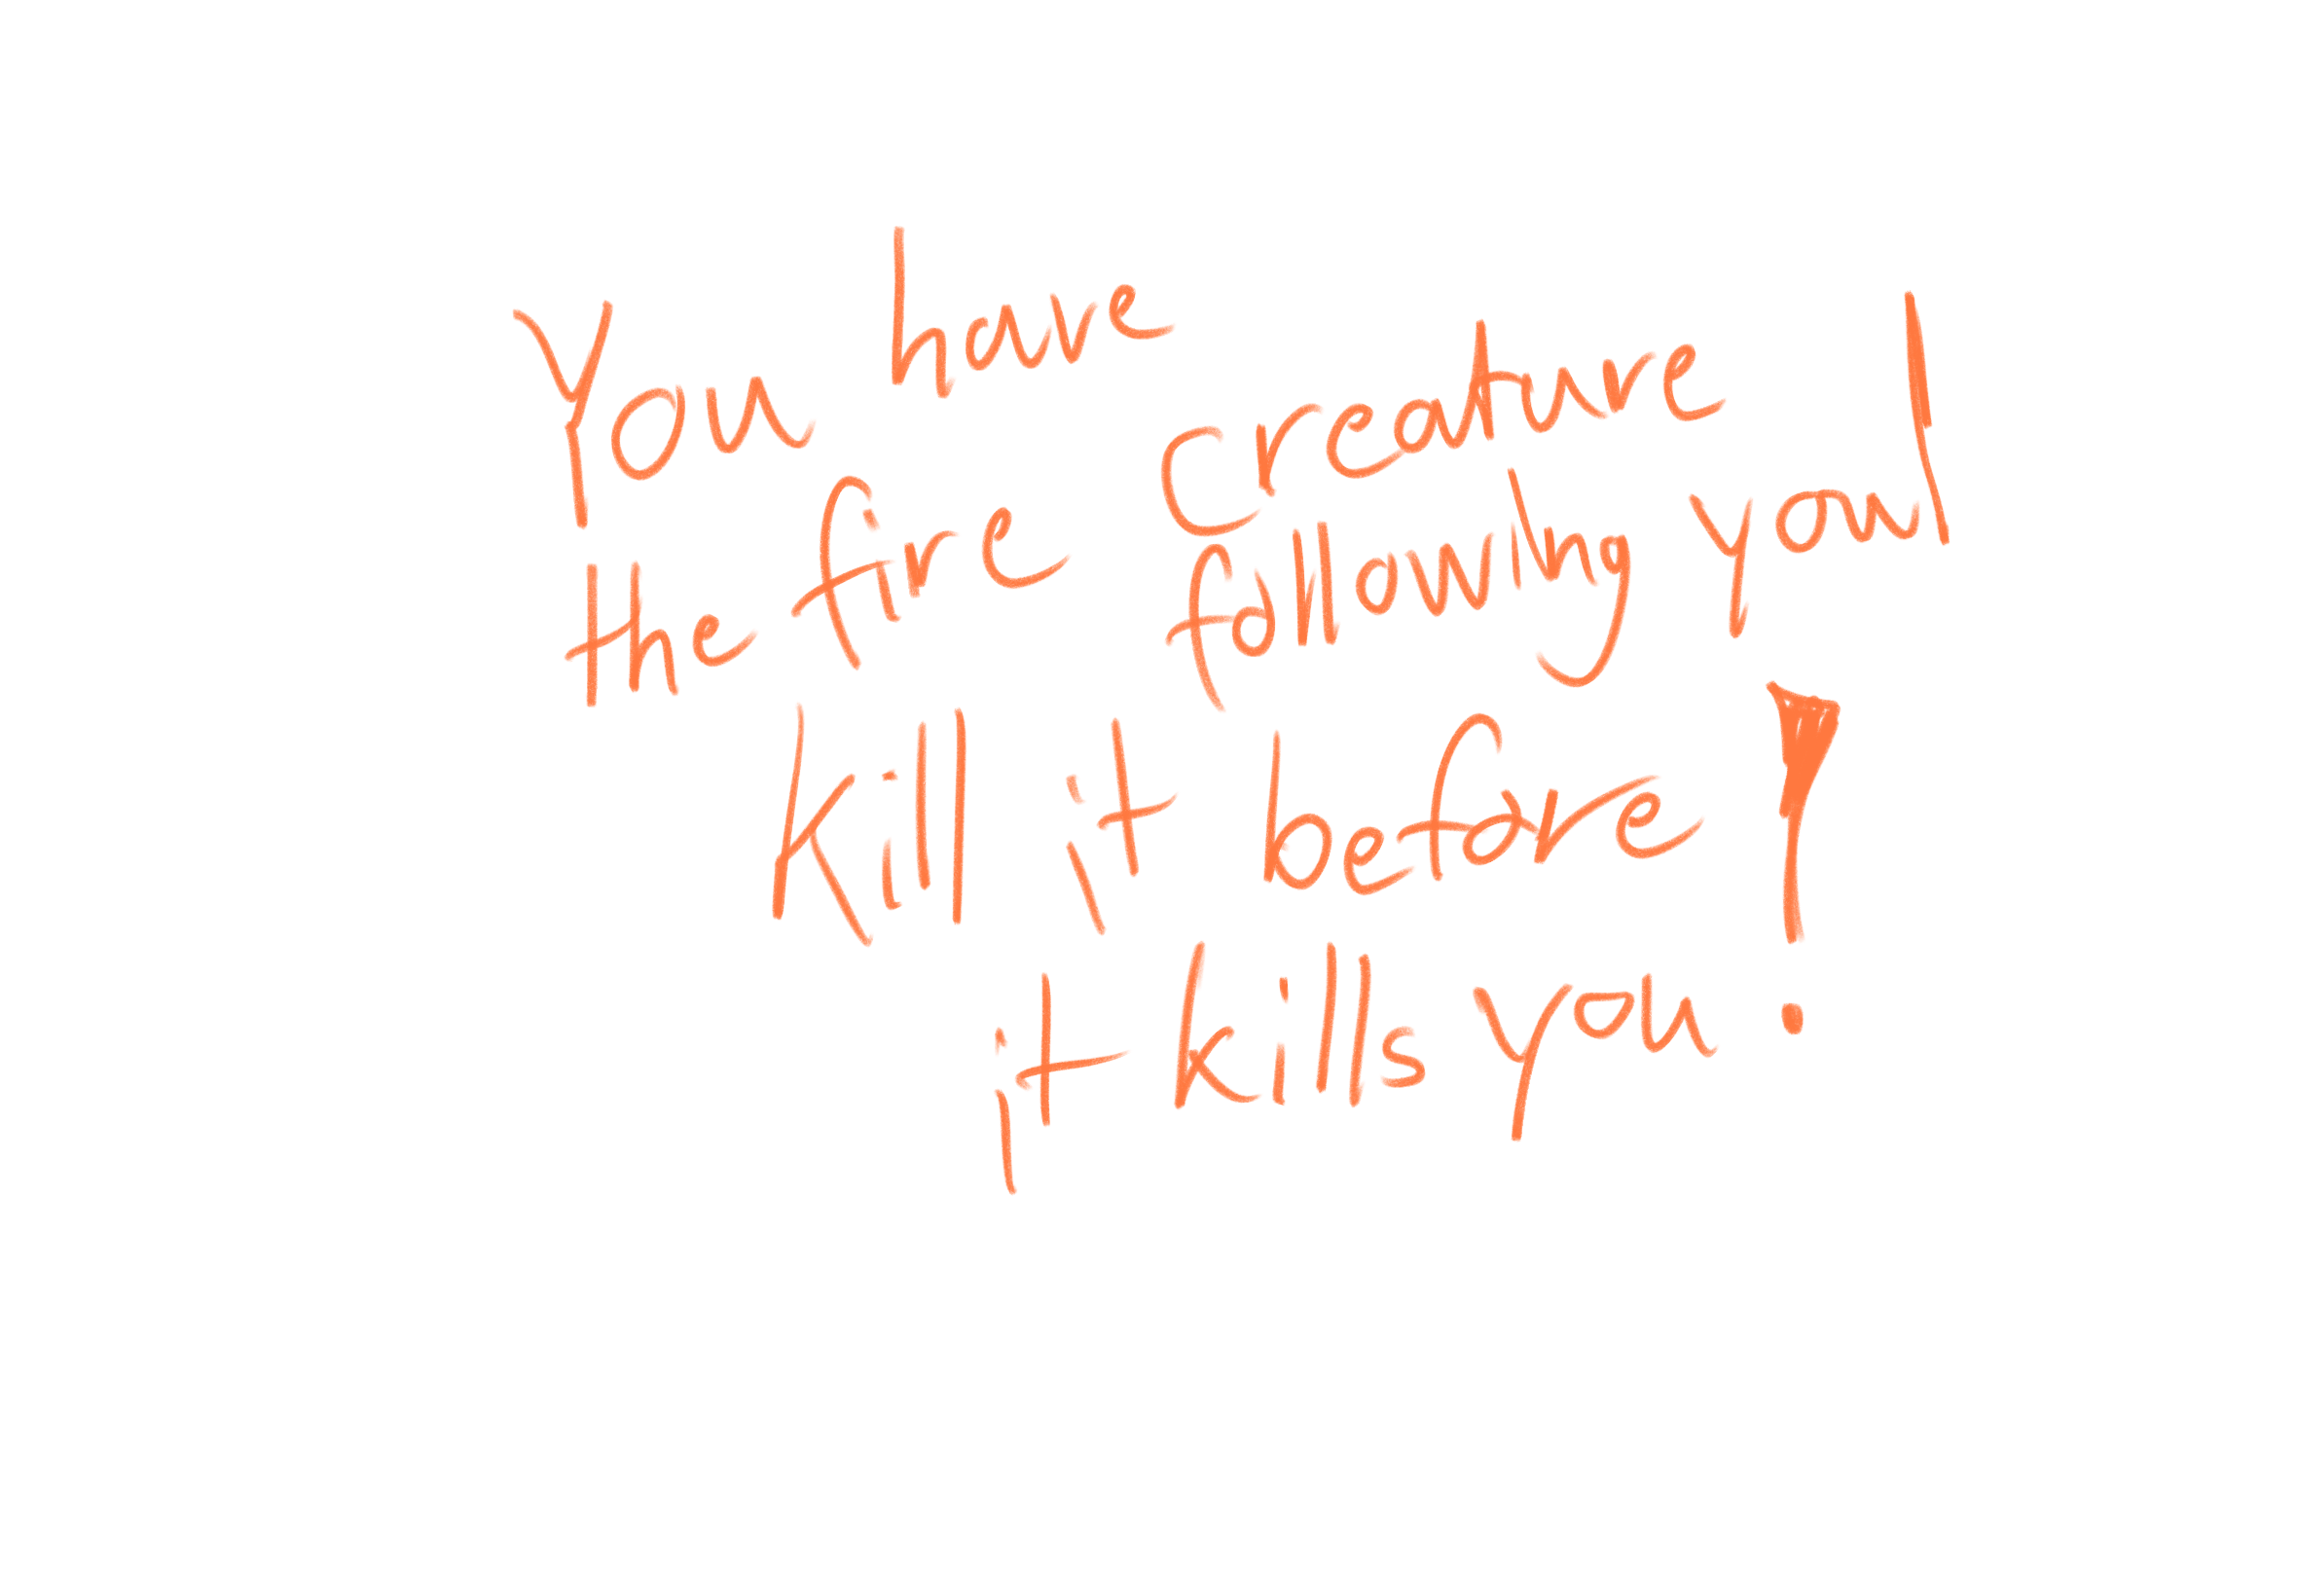 You have
the fire creature
following you!
Kill it before
it kills you!